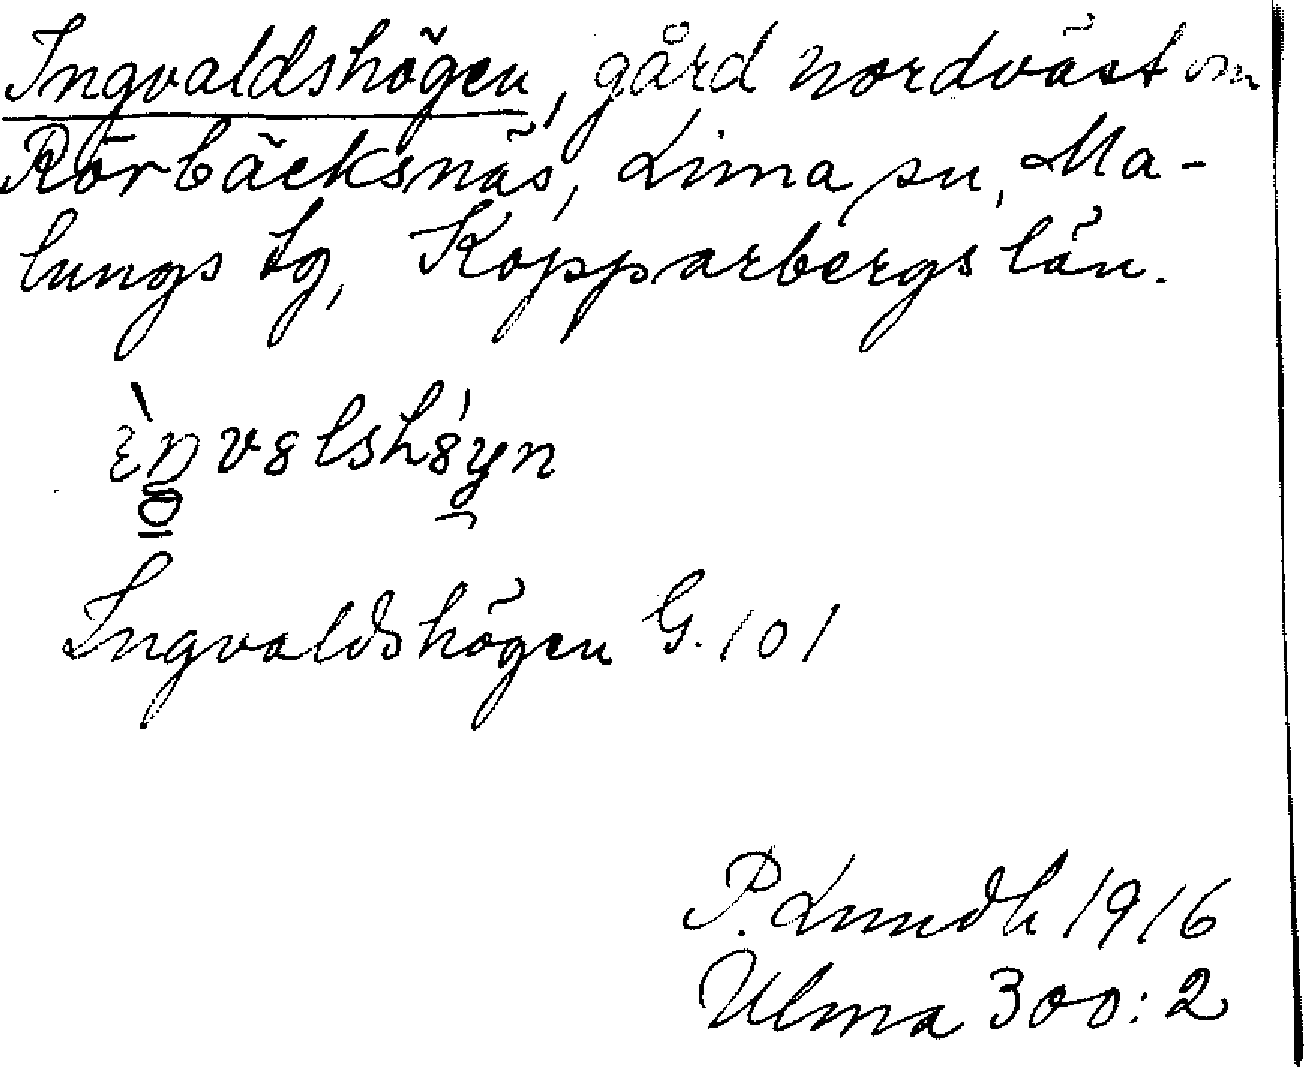 Ingvaldshögen, gård nordväst om
Rörbäcksnäs, Lima sn, Ma-
lungs tg, Kopparbergs län.
Ingvaldshögen G. 101
P. Lundh 1916
Ulma 300:2